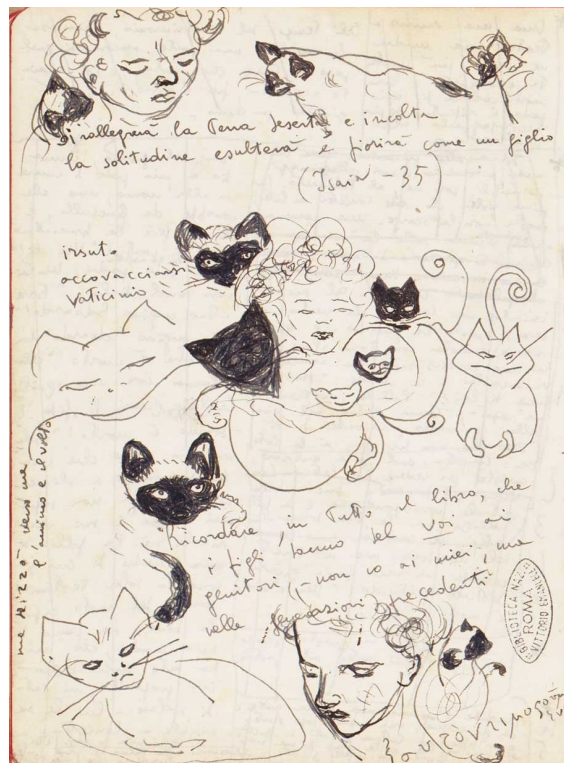 si rallegrerà la terra deserta e incolta
la solitudine esulterà e fiorirà come un giglio
(Isaia - 35)
irsute
accovacciarsi
Vaticinio
Ricordare, in tutto il libro, che
i figli danno del voi ai
genitori (- non io ai miei, ma
nelle generazioni precedenti
verso me
l'animo e il volto
BIBLIOTECA NAZ.
ROMA
VITTORIO EMANUELE